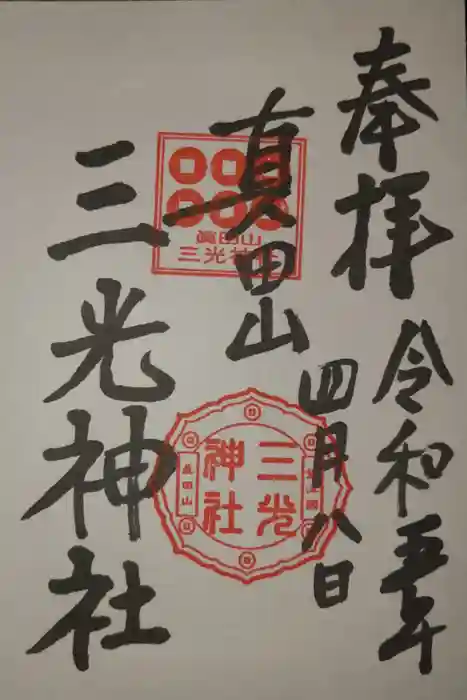 奉拝
令和五年
四月八日
真田山
三光神社
眞田山
三光神社
三光
神社
真田山